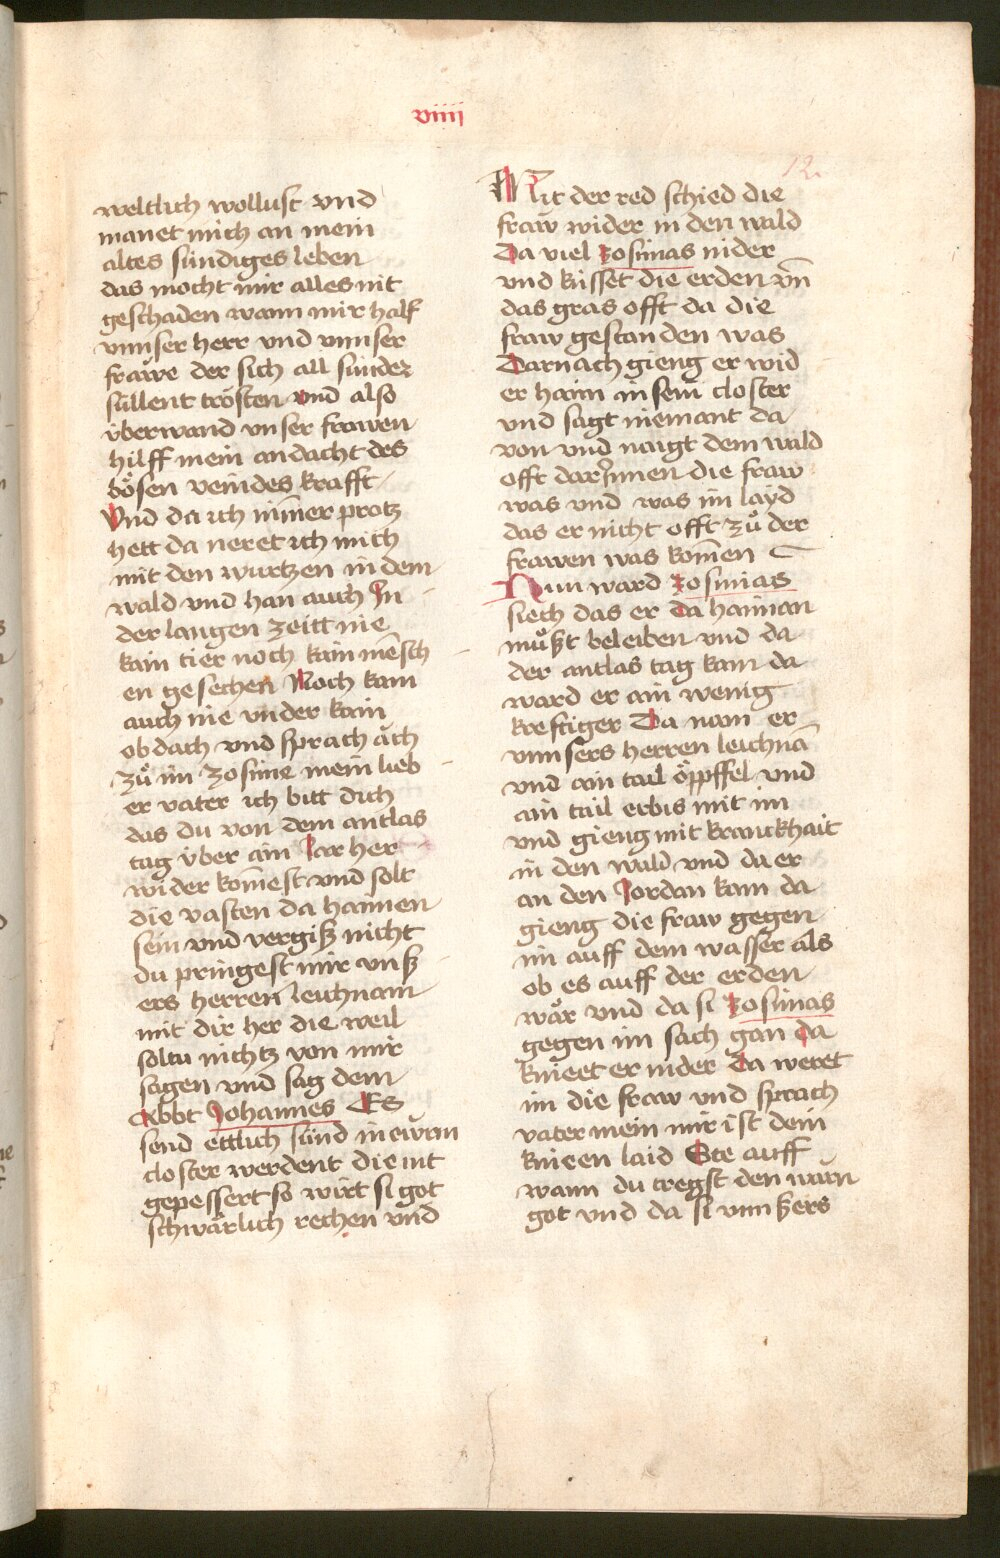 viiii
12.
weltlich wollust vnd
manet mich an mein
altes sündiges leben
das mocht mir alles nit
geschaden wann mir half
vnnser herr vnd vnnser
frawe der sich all sünder
süllent trösten vnd also
überwand vnser frawen
hilff mein andacht des
bösen veindes krafft
Vnd da ich nim̄er protz
hett da neret ich mich
mit den wurtzen in dem
wald vnd han auch In
der langen zeitt nie
kain tier noch kain mēsch
en gesechen Noch kam
auch nie vnder kain
obdach vnd sprach ach
zů im zosime mein lieb
er vater ich bitt dich
das du von dem antlas
tag über ain Jar her
wider kom̄est vnd solt
die vasten da hannen
sein vnd vergiß nicht
du pringest mir vnß
ers herren leichnam
mit dir her die weil
soltu nichtz von mir
sagen vnd sag dem
Abbt Johannes Es
send ettlich sünd in ewrm
closter werdent die nit
gepessert so wirt si got
schwärlich rechen vnd
Mit der red schied die
fraw wider in den wald
Da viel zosimas nider
vnd küsset die erden vn̄
das gras offt da die
fraw gestanden was
Darnach gieng er wid
er haim in sein closter
vnd sagt niemant da
von vnd naigt dem wald
offt darinnen die fraw
was vnd was im layd
das er nicht offt zů der
frawen was kom̄en
Nun ward zosimas
siech das er da haiman
můßt beleiben vnd da
der antlas tag kam da
ward er ain wenig
kreftiger Da nam er
vnnsers herren leichnā
vnd ain tail öppffel vnd
ain tail erbis mit im
vnd gieng mit kranckhait
in den wald vnd da er
an den Jordan kam da
gieng die fraw gegen
im auff dem wasser als
ob es auff der erden
wär vnd da si zosimas
gegen im sach gan da
knieet er nider Da weret
im die fraw vnd sprach
vater mein mir ist dein
knieen laid Ste auff
wann du tregst den warn
got vnd da si vnnßers